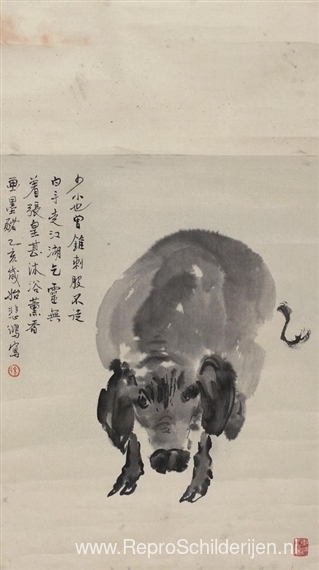 少小也曾錐刺股不徒
白手走江湖乞靈無
着張皇甚沐浴薰香
畫墨豬乙亥歲始悲鴻寫
www.ReproSchilderijen.nl